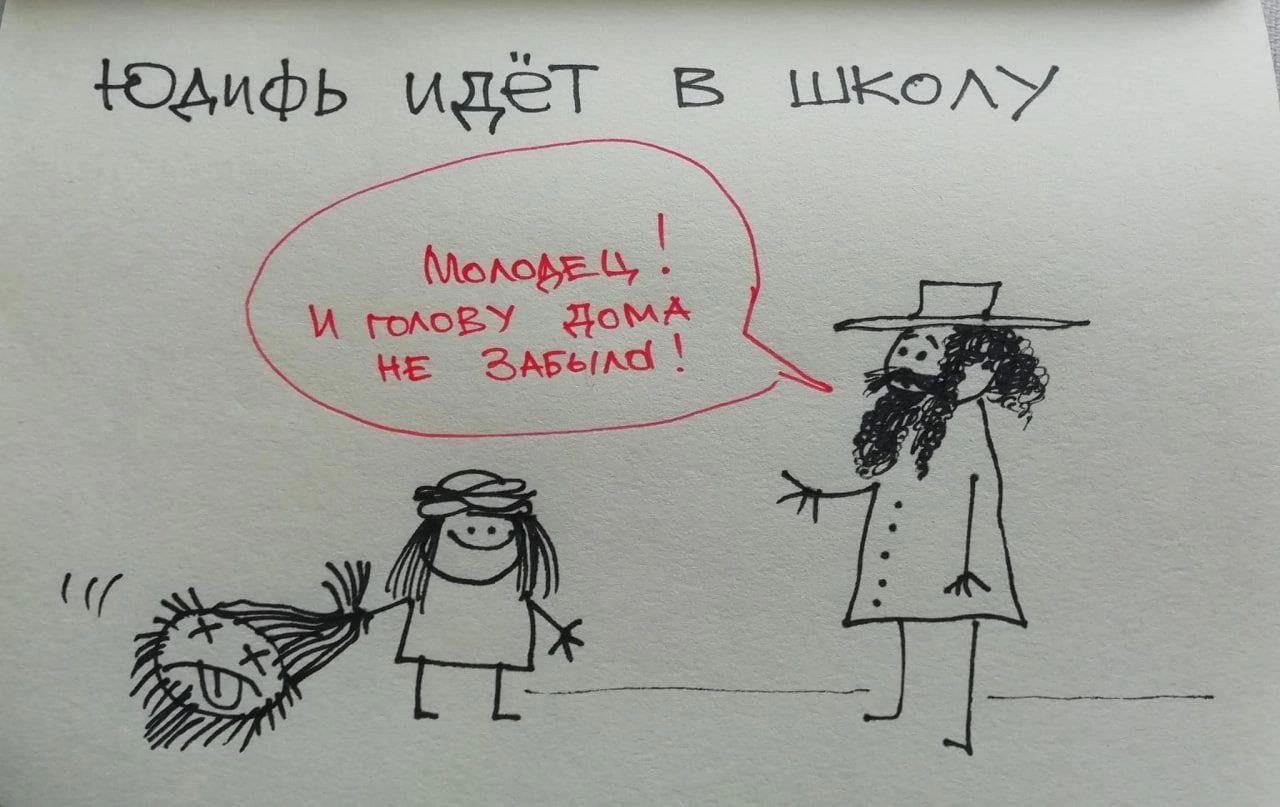 Юдифь идёт в школу
Молодец!
И голову дома
не забыла!